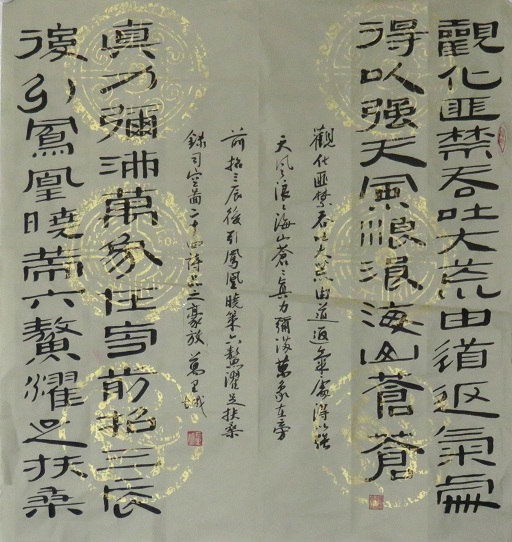 觀化匪禁吞吐大荒由道返氣處
得以强天風浪浪海山蒼蒼
觀化匪禁吞吐大荒由道返氣處得以强
天風浪〻海山蒼〻真力彌滿萬象在旁
前招三辰後引鳳凰曉策六鰲濯足扶桑
錄司空圖二十四詩品之豪放 萬里城
真力彌滿萬象在旁前招三辰
後引鳳凰曉策六鰲耀足扶桑